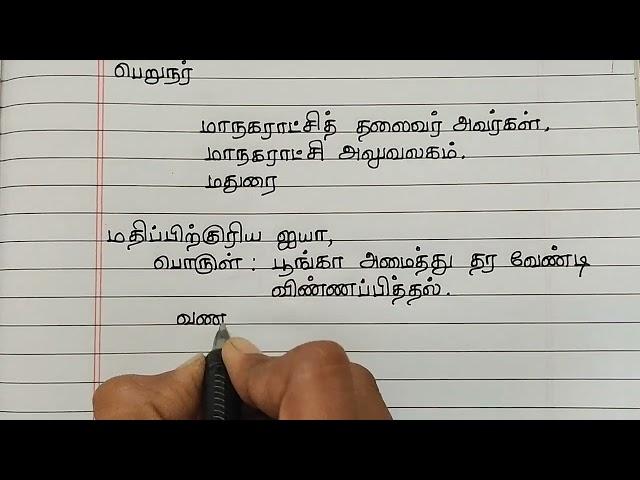 பெறுநர்
மாநகராட்சித் தலைவர் அவர்கள்,
மாநகராட்சி அலுவலகம்.
மதுரை
மதிப்பிற்குரிய ஐயா,
பொருள் : பூங்கா அமைத்து தர வேண்டி
விண்ணப்பித்தல்.
வண